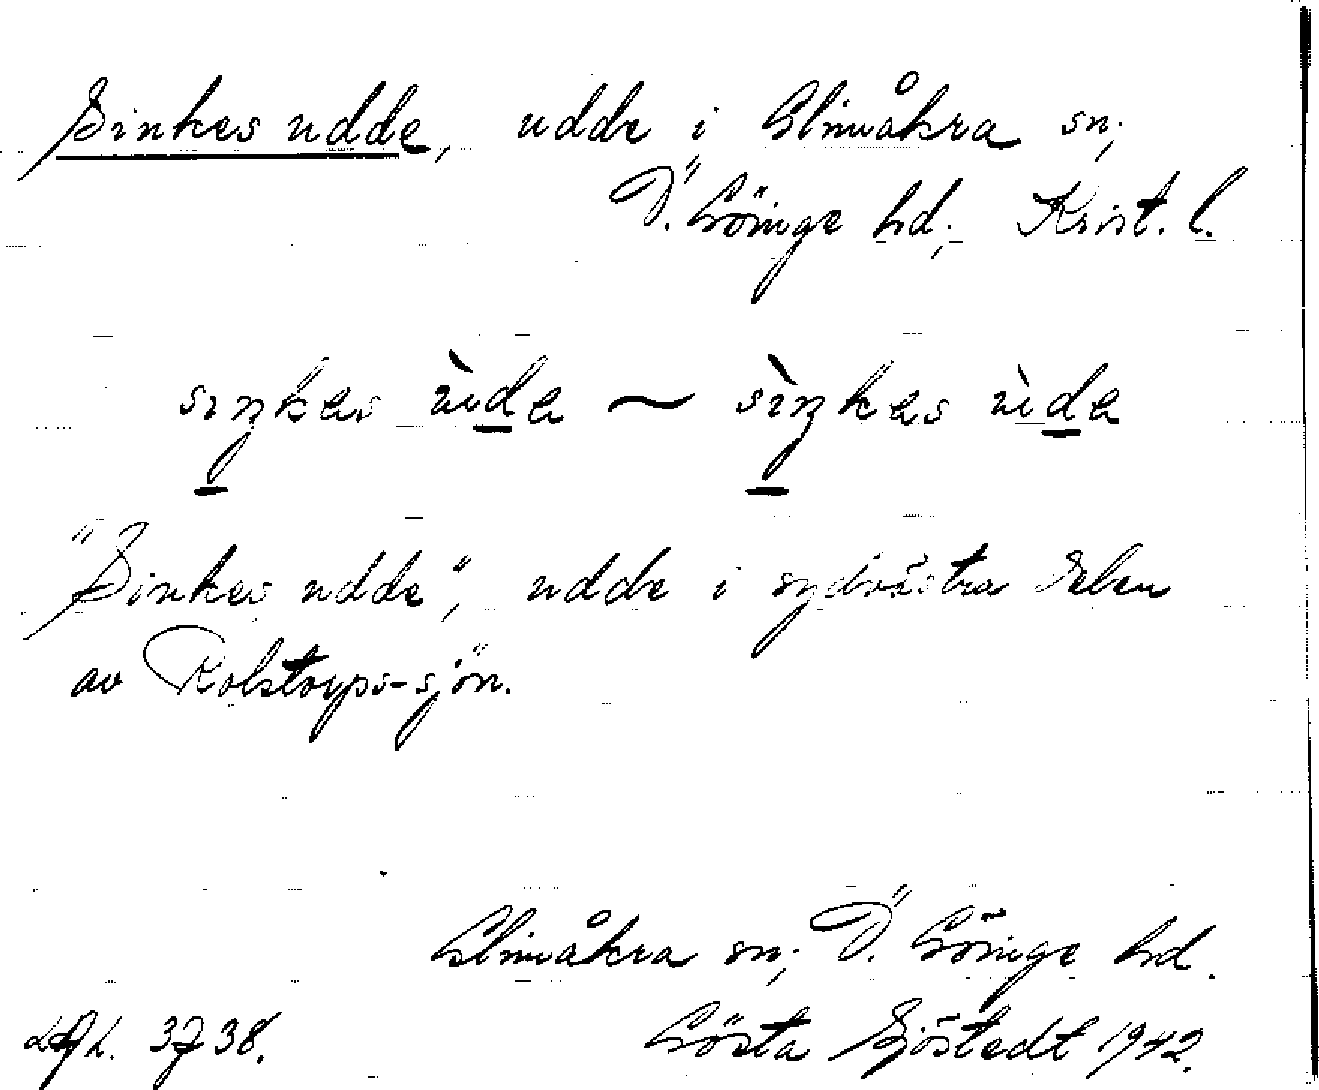 Sinkes udde, udde i Glimåkra sn;
Ö. Göinge hd; Krist. l.
siŋkes ùde ~ sìŋkes ùde
"Sinkes udde", udde i sydvästra delen
av Rolstorps-sjön.
Glimåkra sn; Ö. Göinge hd.
3738. Gösta Sjöstedt 1942.